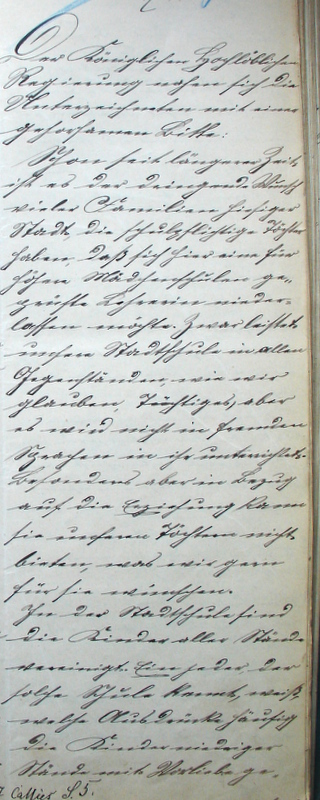 Der Königlichen Hochlöblichen
Regierung nahen sich die
Unterzeichneten mit einer
gehorsamen Bitte:
Schon seit längerer Zeit
ist es der dringende Wunsch
vieler Familien hiesiger
Stadt, die schulpflichtige Töchter
haben, daß sich hier eine für
höhere Mädchenschulen ge-
prüfte Lehrerin nieder-
lassen möchte. Zwar leistet
unsere Stadtschule in allen
Gegenständen, wie wir
glauben, Tüchtiges, aber
es wird nicht in fremden
Sprachen in ihr unterrichtet.
Besonders aber in Bezug
auf die Erziehung kann
sie unseren Töchtern nicht
bieten, was wir gern
für sie wünschen.
In der Stadtschule sind
die Kinder aller Stände
vereinigt. Ein jeder, der
solche Schule kennt, weiß,
welche Ausdrücke häufig
die Kinder niedriger
Stände mit Vorliebe ge-
S. 5.